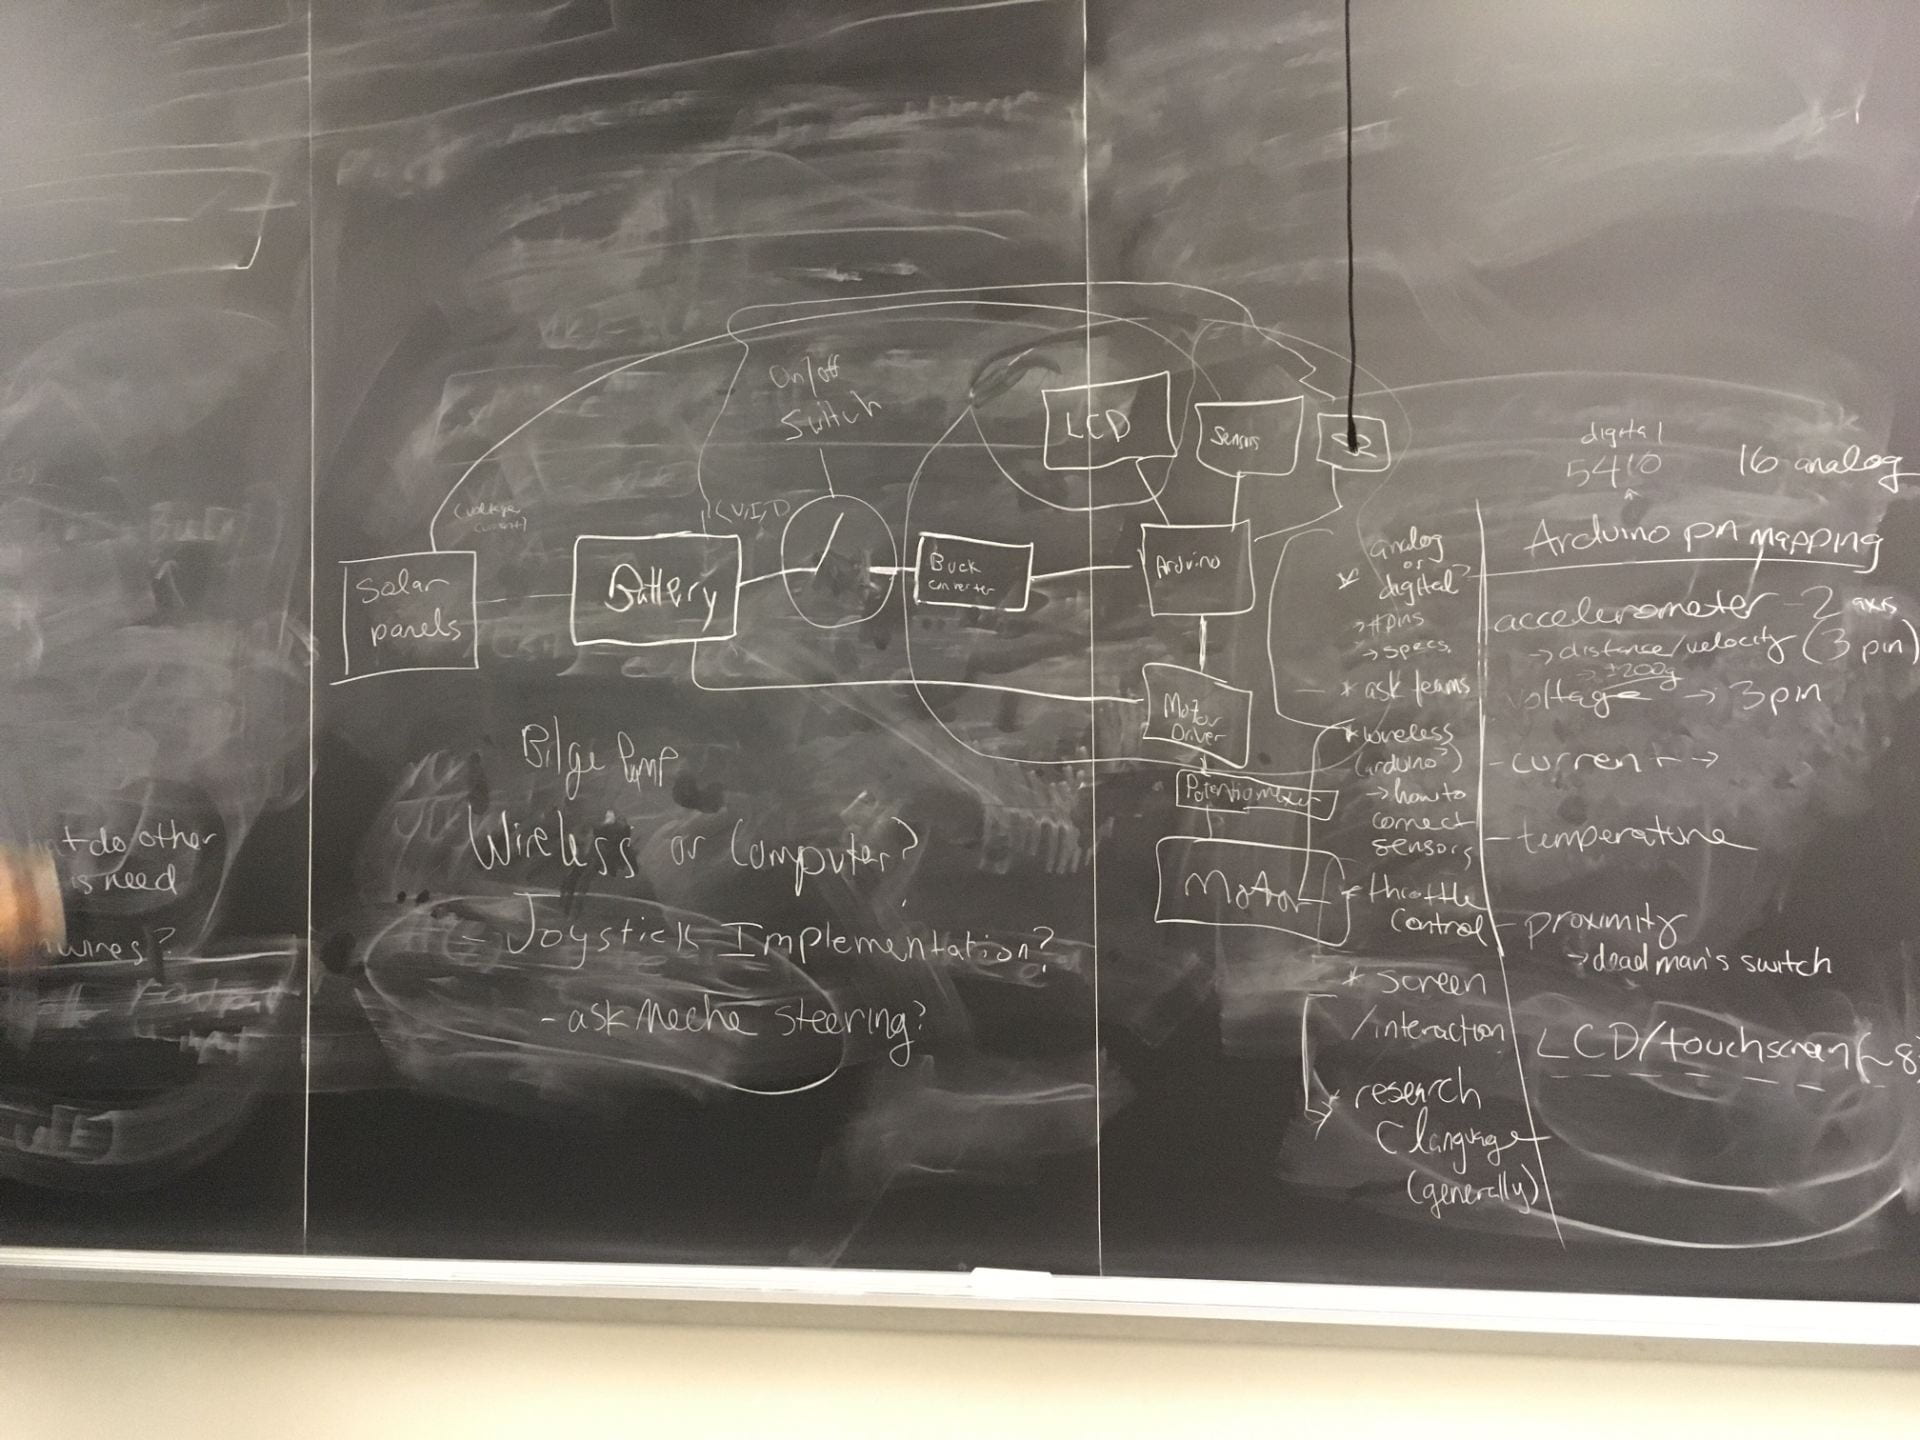 On/off
Switch
LCD
Sensors
(voltage
current)
(V,I,
Solar
panels
Battery
Buck
converter
Arduino
Motor
Driver
Potentiometer
Motor
Bilge Pump
Wireless or Computer?
- Joystick Implementation?
- ask Meche steering?
t do other
is need
wires?
analog
or
digital?
→ # pins
→ specs.
* ask teams
* wireless
(arduino?)
→ how to
connect
sensors
* throttle
control
* screen
/interaction
* research
C language
(generally)
digital
5410
16 analog
Arduino pin mapping
accelerometer - 2 axis
→ distance/velocity (3 pin)
→ ±200g
voltage → 3 pin
- current →
- temperature
- proximity
→ dead man's switch
LCD/touchscreen (~8